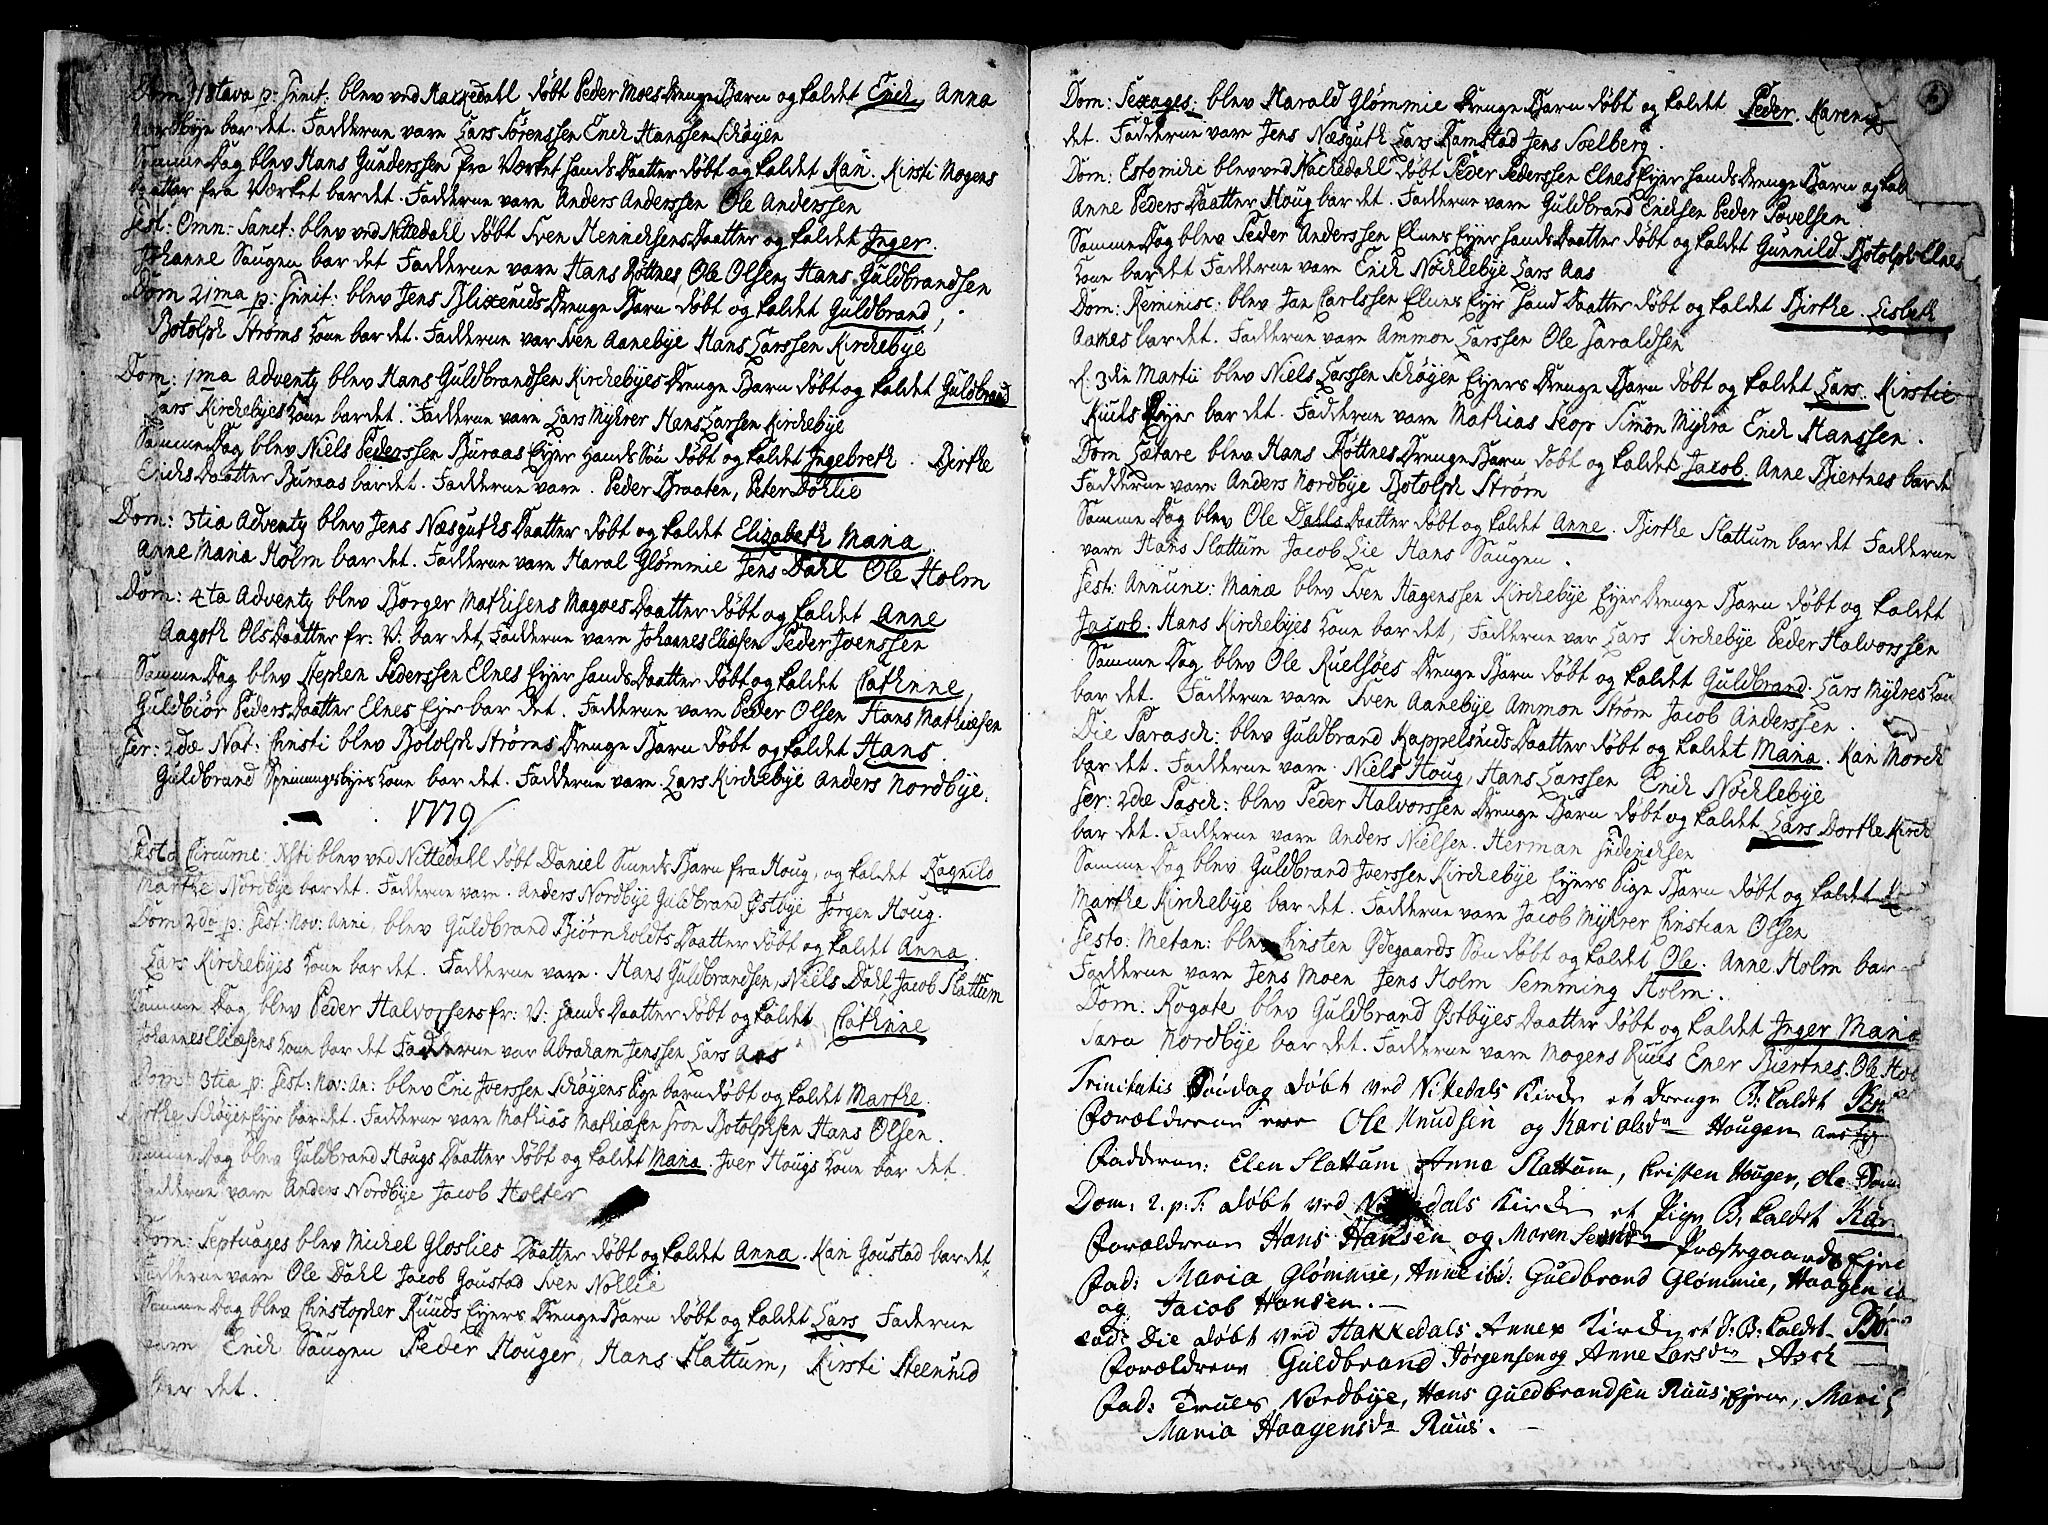 Dom 18tava p: Trinit: blev ved Hakkedahl døbt Peder Moes DrengeBarn og kaldet Erich, Anna
Nordbye bar det. Fadderne vare Lars Sørenssen Erich Hanssen Schøyen
Samme Dag blev Hans Gunderssen fra Værket hands Daatter døbt og kaldet Kari. Kirsti Mogens
Daatter fra Værket bar det. Fadderne vare Anders Anderssen Ole Anderssen
Fest: Omn: Sanct: blev ved Nittedahl døbt Sven Henrichsens Daatter og kaldet Inger.
Johanne Saugen bar det Fadderne vare Hans Røttnes, Ole Olsen, Hans Guldbrandsen
Dom 21ma p: Trinit: blev Jens Blixruds Drenge Barn døbt og kaldet Guldbrand,
Botolph Strøms Kone bar det. Fadderne var Sven Aanebye Hans Larssen Kirchebye
Dom: 1ma Adventy blev Hans Guldbrandsen Kirchebyes Drenge Barn døbt og kaldet Guldbrand
Lars Kirchebyes Kone bar det. Fadderne vare Lars Myhrer Hans Larsen Kirchebye
Samme Dag blev Niels Pederssen Buraas Eyer hands Søn døbt og kaldet Ingebreth. Birthe
Erichs Daatter Buraas bar det. Fadderne vare. Peder Braaten, Peter Døhlie
Dom: 3tia Adventy blev Jens Næsguths Daatter døbt og kaldet Elizabeth Maria
Anne Maria Holm bar det. Fadderne vare Haral Glømmie Jens Dahl Ole Holm
Dom: 4ta Adventy blev Borger Mathisens Magoes Daatter døbt og kaldet Anne
Aagoth Ols Daatter fr: V: bar det, Fadderne vare Johannes Eliæsen Peder Ivenssen
Samme Dag blev Stephen Pederssen Elnes Eyer hands Daatter døbt og kaldet Cathrine,
Guldbiør Peders Daatter Elnes Eyer bar det. Fadderne vare Peder Olsen Hans Mathiæsen
Fer: 2dæ Nat: Christi blev Botolph Strøms Drenge Barn døbt og kaldet Hans.
Guldbrand Spenningsbyes Kone bar det. Fadderne vare Lars Kirchebye Anders Nordbye.
1779
Festo Circume: Xsti blev ved Nittedahl døbt Daniel Smeds Barn fra Houg, og kaldet Ragnild
Marthe Nordbye bar det. Fadderne vare. Anders Nordbye Guldbrand Østbye Jørgen Houg.
Dom 2do p: Fest: Nov: Anni, blev Guldbrand Biørnholdts Daatter døbt og kaldet Anna.
Lars Kirchebyes Kone bar det. Fadderne vare. Hans Guldbrandsen, Niels Dahl Jacob Slattum
Samme Dag blev Peder Halvorssens fr: V: hands Daatter døbt og kaldet Cathrine
Johannes Eliæsens Kone bar det Fadderne var Abraham Jenssen Lars Aas
Dom 3tia p: Fest: Nov: An: blev Eric Iverssen Schøyens Pige barn døbt og kaldet Marthe.
Birthe Schøyen Eyer bar det. Fadderne vare Mathias Mathiæsen Iron Botolphsen Hans Olsen.
Samme Dag blev Guldbrand Hougs Daatter døbt og kaldet Maria. Iver Hougs Kone bar det.
Fadderne vare Anders Nordbye Jacob Holter
Dom: Septuages blev Michel Gloslies Daatter døbt og kaldet Anna. Kari Goustad bar det
Fadderne vare Ole Dahl Jacob Goustad Sven Nøhlie
Samme Dag blev Christopher Ruuds Eyers Drenge Barn døbt og kaldet Lars Faderne
vare Erich Saugen Peder Houger, Hans Slattum, Kirsti Steenrud
bar det.
Dom: Sexages: blev Harald Glømmie Drenge Barn døbt og kaldet Peder. Maren
det. Fadderne vare Jens Næsguth Lars Ramstad Jens Soelberg.
Dom: Estomihi blev ved Hackedahl døbt Peder Pederssen Elnes Eyer hands Drenge Barn og kal
Anne Peders Daatter Houg bar det. Fadderne vare Guldbrand Erichsen Peder Povelsen
Samme Dag blev Peder Anderssen Elnes Eyer hands Daatter døbt og kaldet Gunnild Botolph Elnes
Kone bar det Fadderne vare Erich Nøchlebye Lars Aas
Dom: Reminisc: blev Jan Carlssen Elnes Eyer hand Daatter døbt og kaldet Birthe. Lisbeth
Aanes bar det. Fadderne vare Ammon Larssen Ole Taraldsen
d. 3die Martii blev Niels Larssen Schøyen Eyers Drenge Barn døbt og kaldet Lars. Kirstie
Ruuds Eyer bar det. Fadderne vare Mathias Seop Simon Myhra Erich Hanssen.
Dom Lætare blev Hans Røttnes Drenge Barn døbt og kaldet Jacob. Anne Biertnes bar de
Fadderne vare Anders Nordbye Botolph Strøm
Samme Dag blev Ole Dahls Daatter døbt og kaldet Anne. Birthe Slattum bar det Fadderne
vare Hans Slattum Jacob Lie Hans Saugen.
Fest: Annunx: Mariæ blev Sven Hagenssen Kirchebye Eyer Drenge Barn døbt og kaldet
Jacob. Hans Kirchebyes Kone bar det, Fadderne var Lars Kirchebye Peder Halvorssen
Samme Dag blev Ole Ruelsøes Drenge Barn døbt og kaldet Guldbrand. Lars Myhres Kon
bar det. Fadderne vare Sven Aanebye Ammon Strøm Jacob Anderssen.
Die Parasch: blev Guldbrand Kappelsruds Daatter døbt og kaldet Maria. Kari Morch
bar det. Fadderne vare. Niels Houg, Hans Larssen Erich Nöchlebye
Fer: 2dæ Pasch: blev Peder Halvorssen Drenge Barn døbt og kaldet Lars Dorthe Kirch
bar det. Fadderne vare Anders Nielsen. Herman Friderichsen
Samme Dag blev Guldbrand Iverssen Kirchebye Eyers Pige Barn døbt og kaldet
Marthe Kirchebye bar det. Fadderne vare Jacob Myhrer Christian Olsen
Festo: Metan: blev Christen Ødegaards Søn døbt og kaldet Ole. Anne Holm bar
Fadderne vare Jens Moen Jens Holm Semming Holm.
Dom: Rogate blev Guldbrand Østbyes Daatter døbt og kaldet Inger Maria
Sara Nordbye bar det. Fadderne vare Mogens Ruus Ener Biertnes. Ole Hol
Trinitatis Søndag døbt ved Nittedals Kirche et Drenge B: kaldet
Forældrene ere Ole Knudsen og Kari Olsdr Hougen
Fadderne: Elen Slattum Anna Slattum, Kristen Houger, Ole
Dom: 2. p: T: døbt ved Nittedals Kirche et Pige B. kaldet Kar
Forældrene Hans Hansen og Maren Præstgaards Ejer
Fad: Maria Glømmie, Anne ibid: Guldbrand Glømmie, Haagen
og Jacob Hansen. —
ead: Die døbt ved Hakkedals Annex Kirche et D: B: kaldet
Forældrene Guldbrand Jørgensen og Anne Larsdr Asch
Fad: Truels Nordbye, Hans Guldbrandsen Ruus Ejere, Mari
Maria Haagensdr Ruus. —